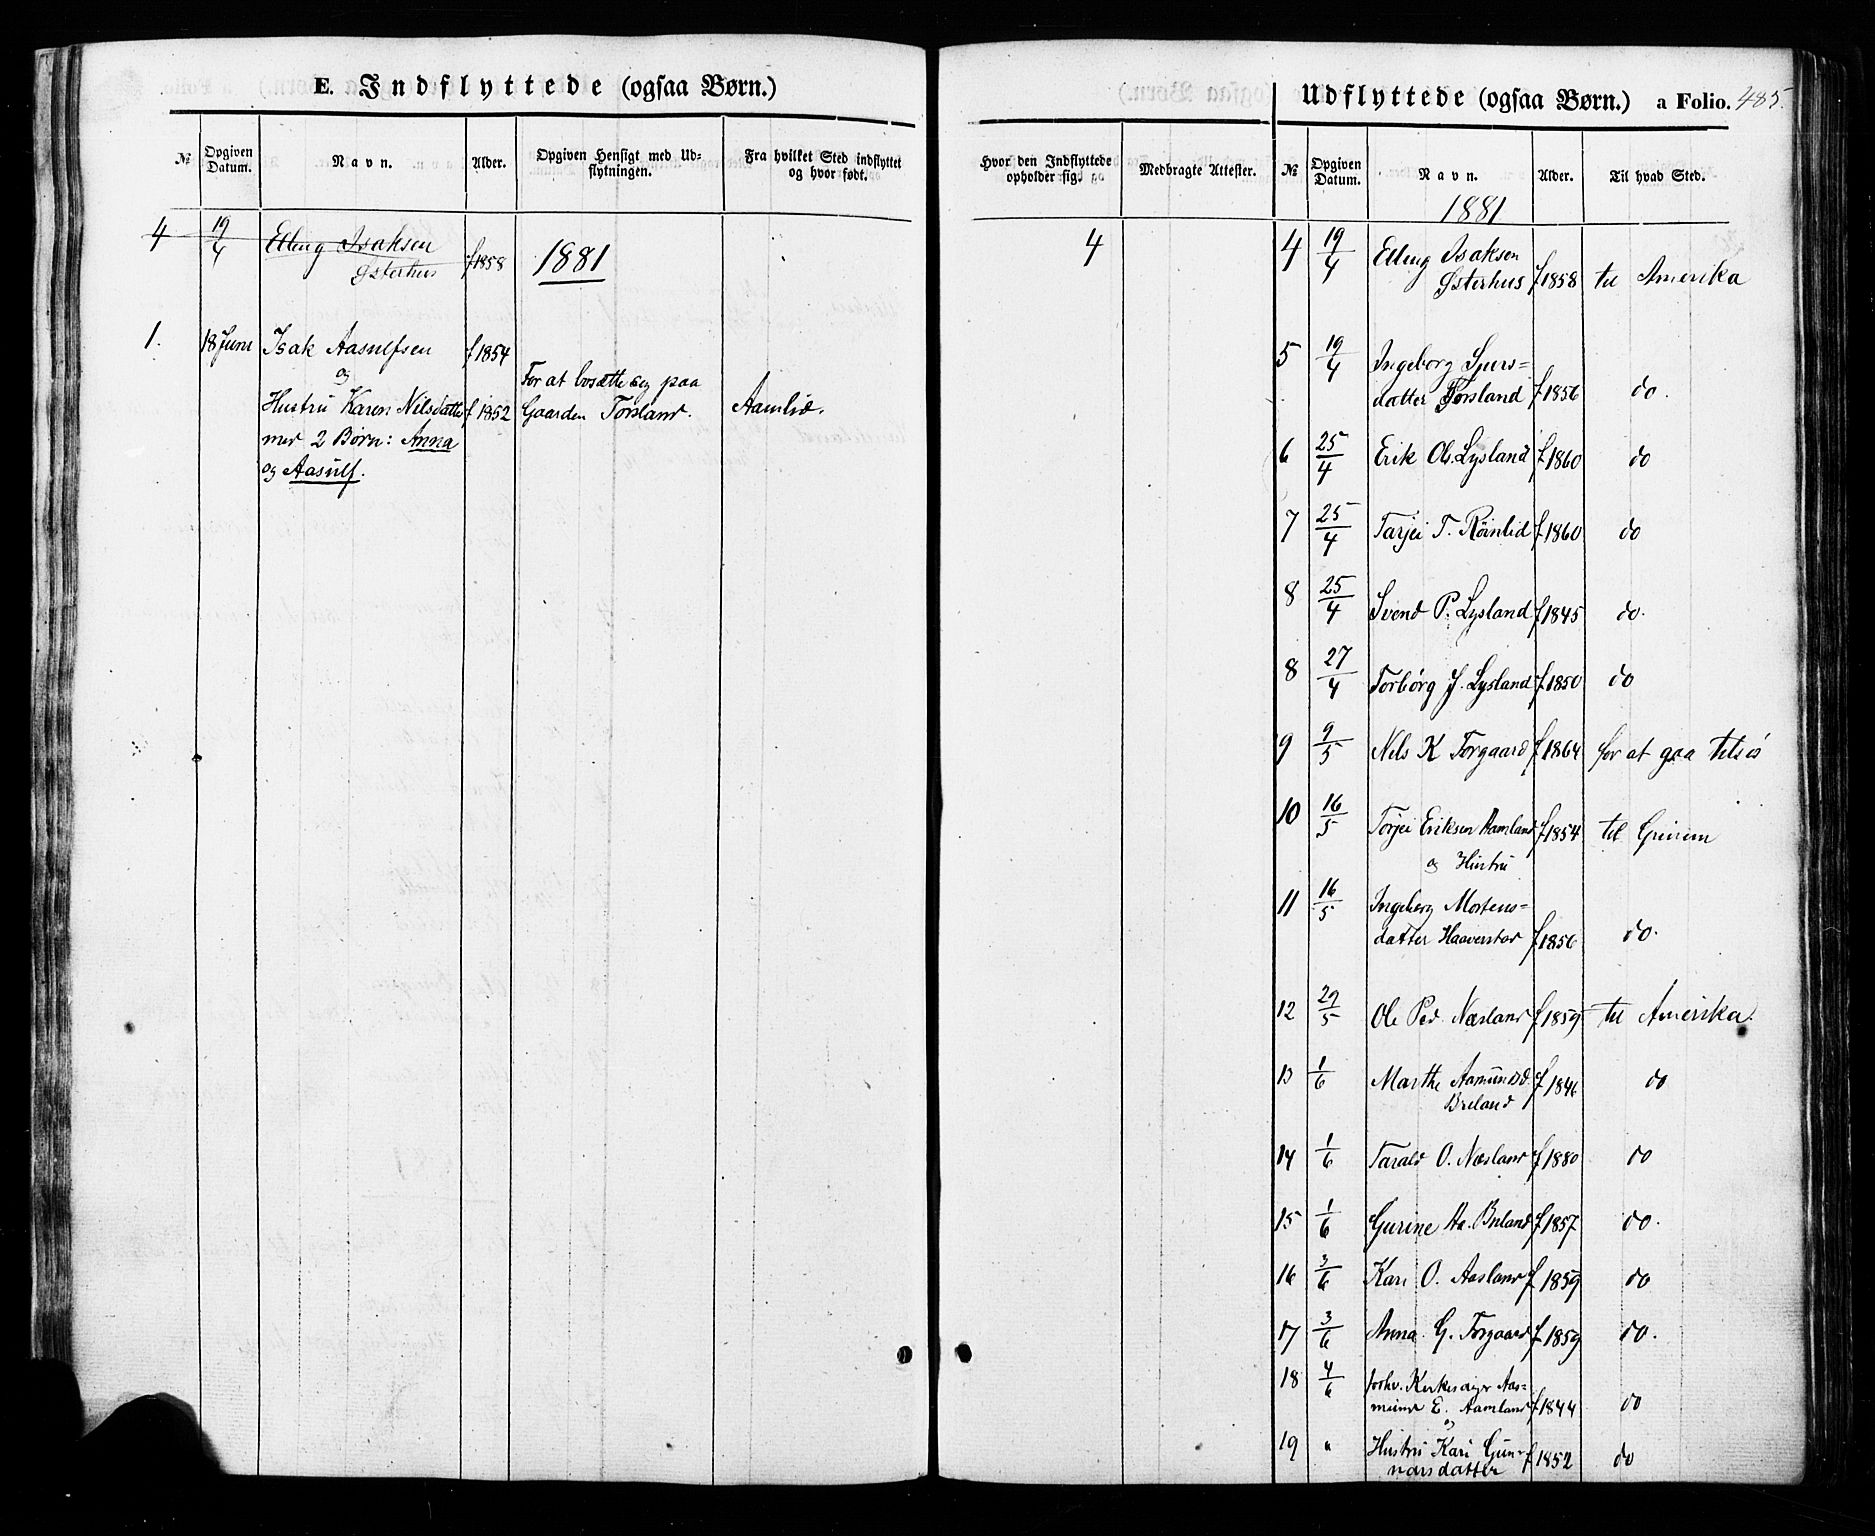 E. Indflyttede (ogsaa Børn.)
№ Opgiven Datum. Navn. Alder. Opgiven Hensigt med Udflytningen. Fra hvilket Sted indflyttet og hvor født.
4 19/4 Elling Isaksen
Østerhus f 1858 1881
1. 18 Juni Isak Aasulfsen f 1854
og For at bosætte sig paa
Hustru Karen Nilsdatter f 1852 Gaarden Torsland. Aamlid.
med 2 Børn: Anna
og Aasulf.
Udflyttede (ogsaa Børn.) a Folio. 485.
Hvor den Indflyttede opholder sig. Medbragte Attester. № Opgiven Datum. Navn. Alder. Til hvad Sted.
1881
4 4 19/4 Elling Isaksen
Østerhus f 1858 til Amerika
5 19/4 Ingeborg Sjurs=
datter Torsland f 1856 do.
6 25/4 Erik Ol. Lysland f 1860 do
7 25/4 Tarjei T. Röinlid f 1860 do
8 25/4 Svend P. Lysland f 1845 do.
8 27/4 Torbörg J. Lysland f 1850 do
9 9/5 Nils K Torgaard f 1864 for at gaa tilsös
10 16/5 Torjei Eriksen Aamland f 1854 til Greipem
og Hustru
11 16/5 Ingeborg Mortens=
datter Haaverstad f 1856 do.
12 29/5 Ole Ped. Næsland f 1859 til Amerika.
13 1/6 Marthe Aamundsd.
Breland f 1846 do
14 1/6 Tarald O. Næsland f 1880 do
15 1/6 Gurine Aa. Breland f 1857 do.
16 3/6 Kari O. Aasland f 1859 do
17 3/6 Anna G. Torgaard f 1859 do.
18 4/6 forhv. Kirkesanger Aas=
mund E. Aamland f 1844 do
og
19 " Hustru Kari Gun=
narsdatter f 1852 do